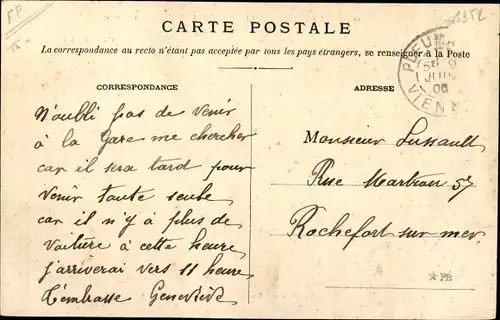 FF
1952
CARTE POSTALE
La correspondance au recto n'étant pas acceptée par tous les pays étrangers, se renseigner à la Poste
CORRESPONDANCE
N'oubli pas de venir
à la Gare me chercher
car il sera tard pour
venir toute seule
car il n'y a plus de
voiture à cette heure
j'arriverai vers 11 heures
T'embrasse Geneviève
ADRESSE
Monsieur Lussault
Rue Martrou 57
Rochefort sur mer
PLEU
9
JUIN
06
VIENNE
PB